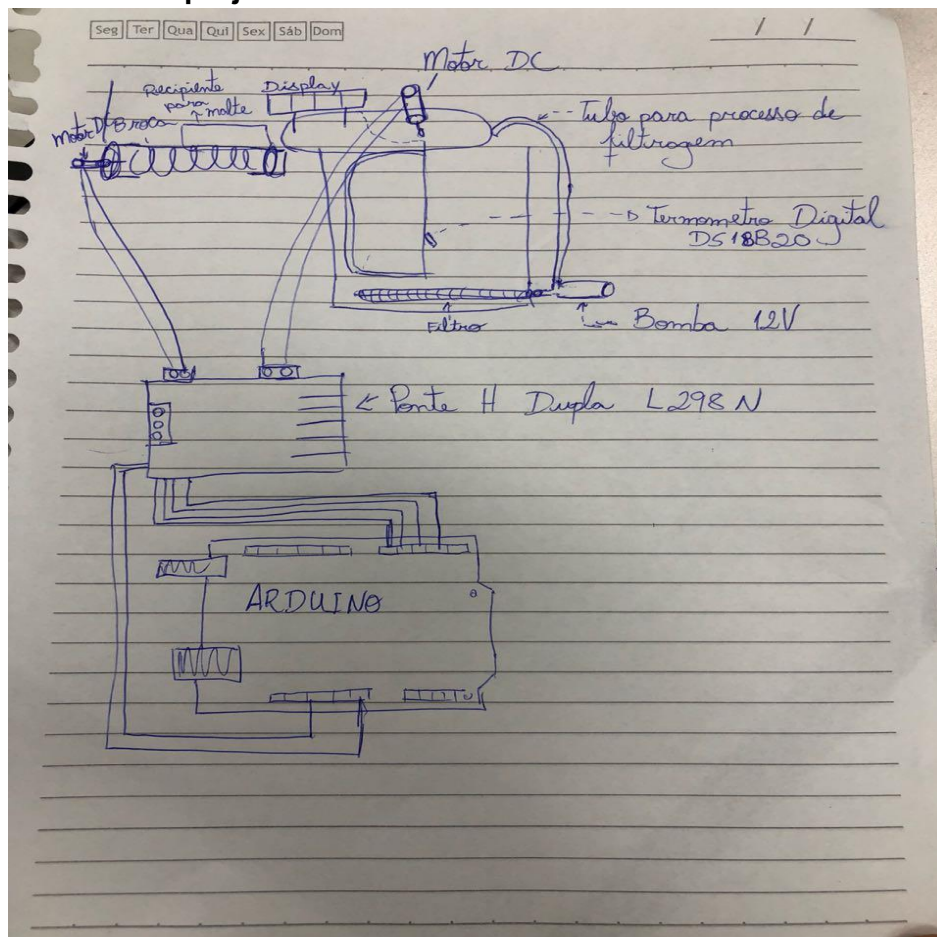 Seg Ter Qua Qui Sex Sáb Dom
/ /
Motor DC
Recipiente
para
malte
Display
Motor DC
Broca
Tubo para processo de
filtragem
Termometro Digital
DS18B20
Filtro
Bomba 12V
Ponte H Dupla L298N
ARDUINO